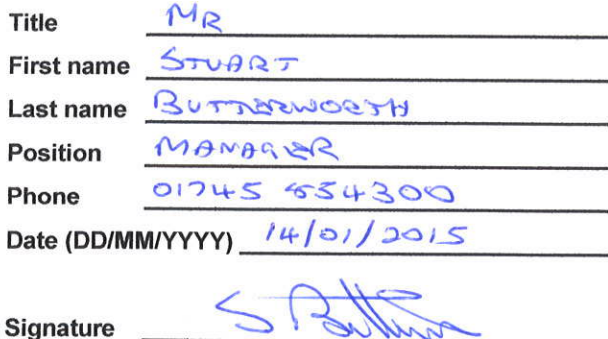 Title MR
First name STUART
Last name BUTTERWORTH
Position MANAGER
Phone 01745 854300
Date (DD/MM/YYYY) 14/01/2015
Signature S Butt